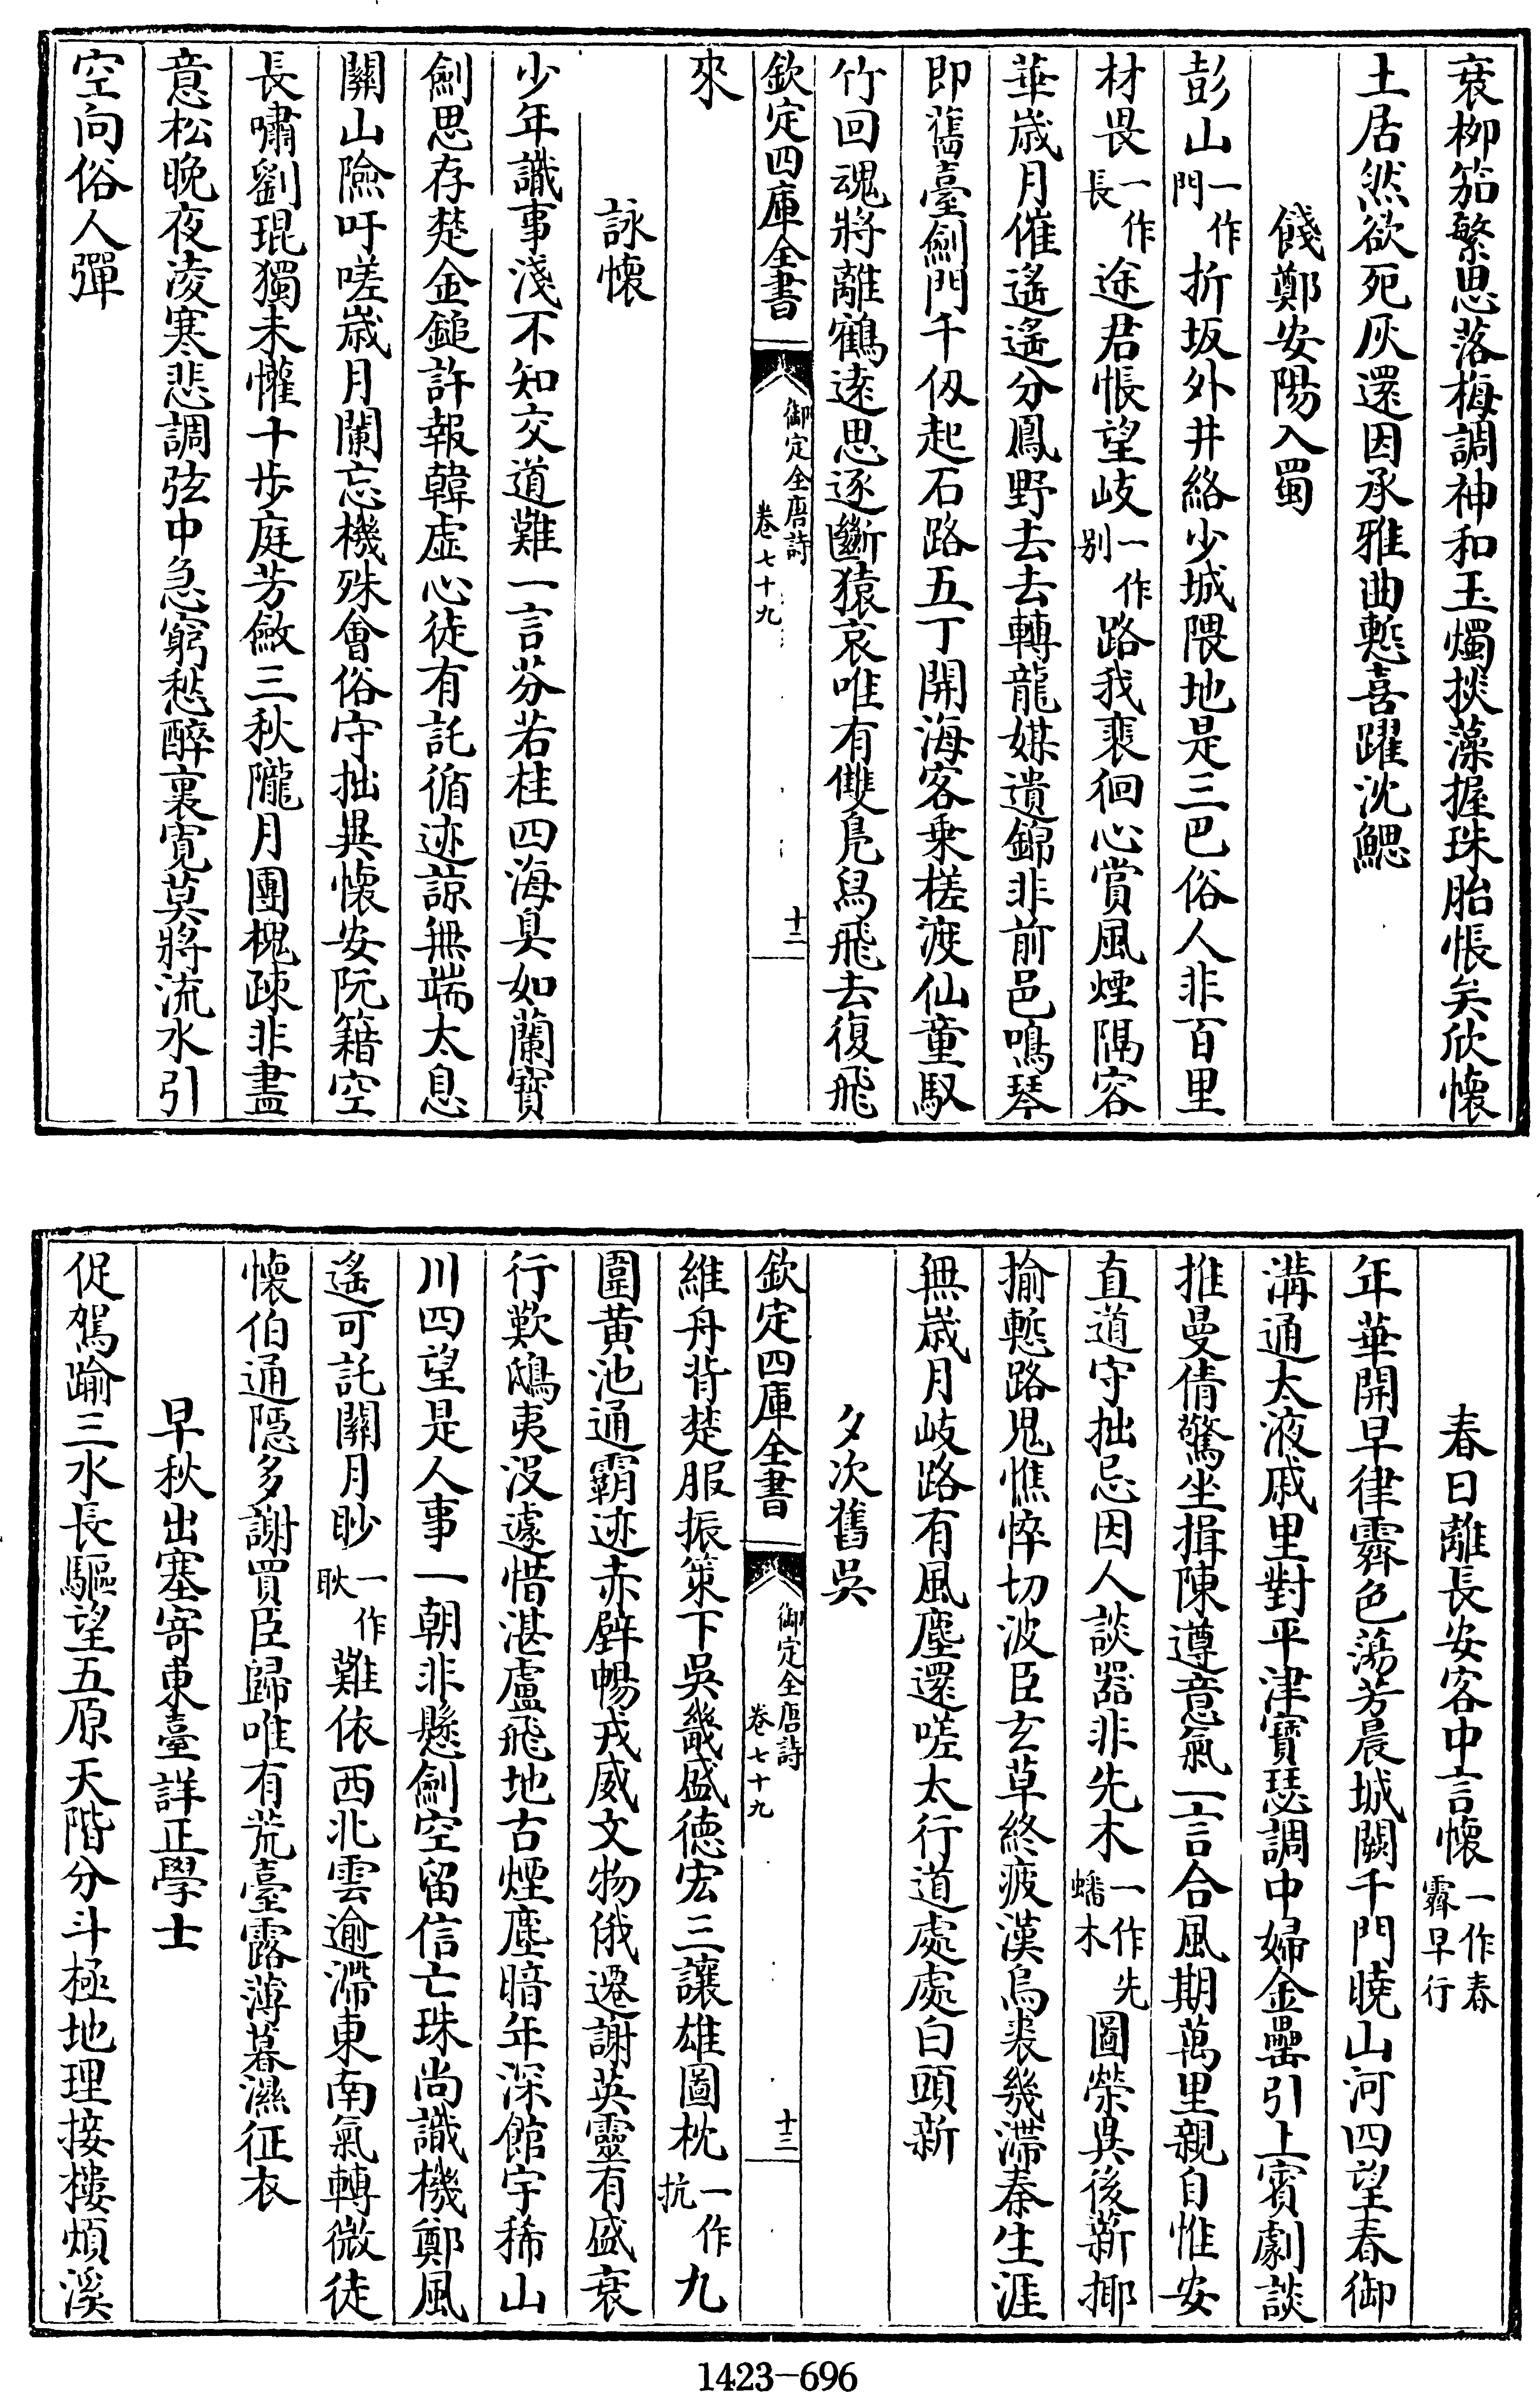 衰柳笳繁思落梅調神和玉燭掞藻握珠胎悵矣欣懷
土居然欲死灰還因承雅曲慙喜躍沈鰓
餞鄭安陽入蜀
彭山一作門折坂外井絡少城隈地是三巴俗人非百里
材畏一作長途君悵望岐一作别路我裵徊心賞風煙隔容
華歳月催遙遙分鳳野去去轉龍媒遺錦非前邑鳴琴
即舊臺劍門千仭起石路五丁開海客乗槎渡仙童馭
竹回魂將離鶴逺思逐斷猿哀唯有雙鳬舄飛去復飛
欽定四庫全書
御定全唐詩
卷七十九
十二
來
詠懷
少年識事淺不知交道難一言芬若桂四海臭如蘭寳
劍思存楚金鎚許報韓虚心徒有託循迹諒無端太息
關山險吁嗟歳月闌忘機殊會俗守拙異懷安阮籍空
長嘯劉琨獨未懽十步庭芳斂三秋隴月團槐疎非盡
意松晚夜凌寒悲調弦中急窮愁醉裏寛莫將流水引
空向俗人彈
春日離長安客中言懷一作春霽早行
年華開早律霽色蕩芳晨城闕千門曉山河四望春御
溝通太液戚里對平津寳瑟調中婦金罍引上賓劇談
推曼倩驚坐揖陳遵意氣一言合風期萬里親自惟安
直道守拙忌因人談器非先木一作先蟠木圖榮異後薪揶
揄慙路鬼憔悴切波臣玄草終疲漢烏裘幾滯秦生涯
無歳月岐路有風塵還嗟太行道處處白頭新
夕次舊吳
欽定四庫全書
御定全唐詩
卷七十九
十三
維舟背楚服振策下吳畿盛徳宏三讓雄圖枕一作抗九
圍黄池通霸迹赤壁暢戎威文物俄遷謝英靈有盛衰
行歎鴟夷沒遽惜湛盧飛地古煙塵暗年深館宇稀山
川四望是人事一朝非懸劍空留信亡珠尚識機鄭風
遙可託關月眇一作耿難依西北雲逾滯東南氣轉微徒
懷伯通隱多謝買臣歸唯有荒臺露薄暮濕征衣
早秋出塞寄東臺詳正學士
促駕踰三水長驅望五原天階分斗極地理接樓煩溪
1423-696